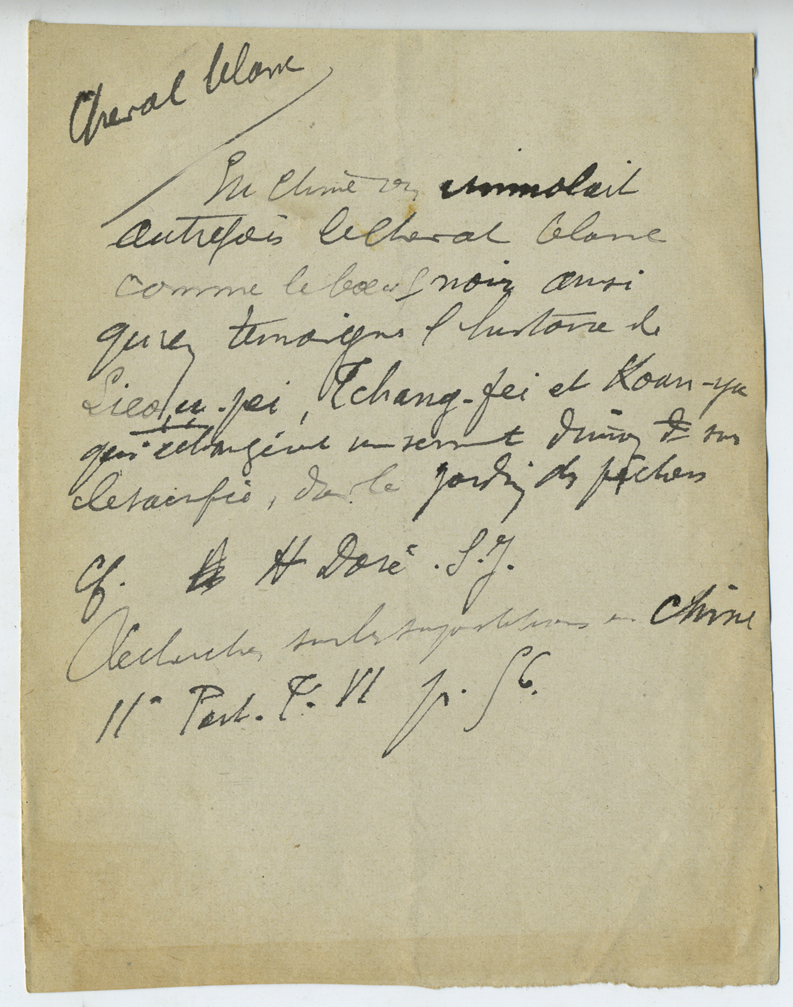 Cheval blanc
En Chine on immolait
autrefois le cheval blanc
comme le bœuf noir ainsi
qu'en témoigne l'histoire de
Lieou-pei, Tchang-fei et Koan-yu
qui échangèrent un serment d'union sur
le sacrifié, dans le jardin des pêchers
Cf. H Doré. S.J.
Recherches sur les superstitions en Chine
IIe Part. T. VI p. 56.